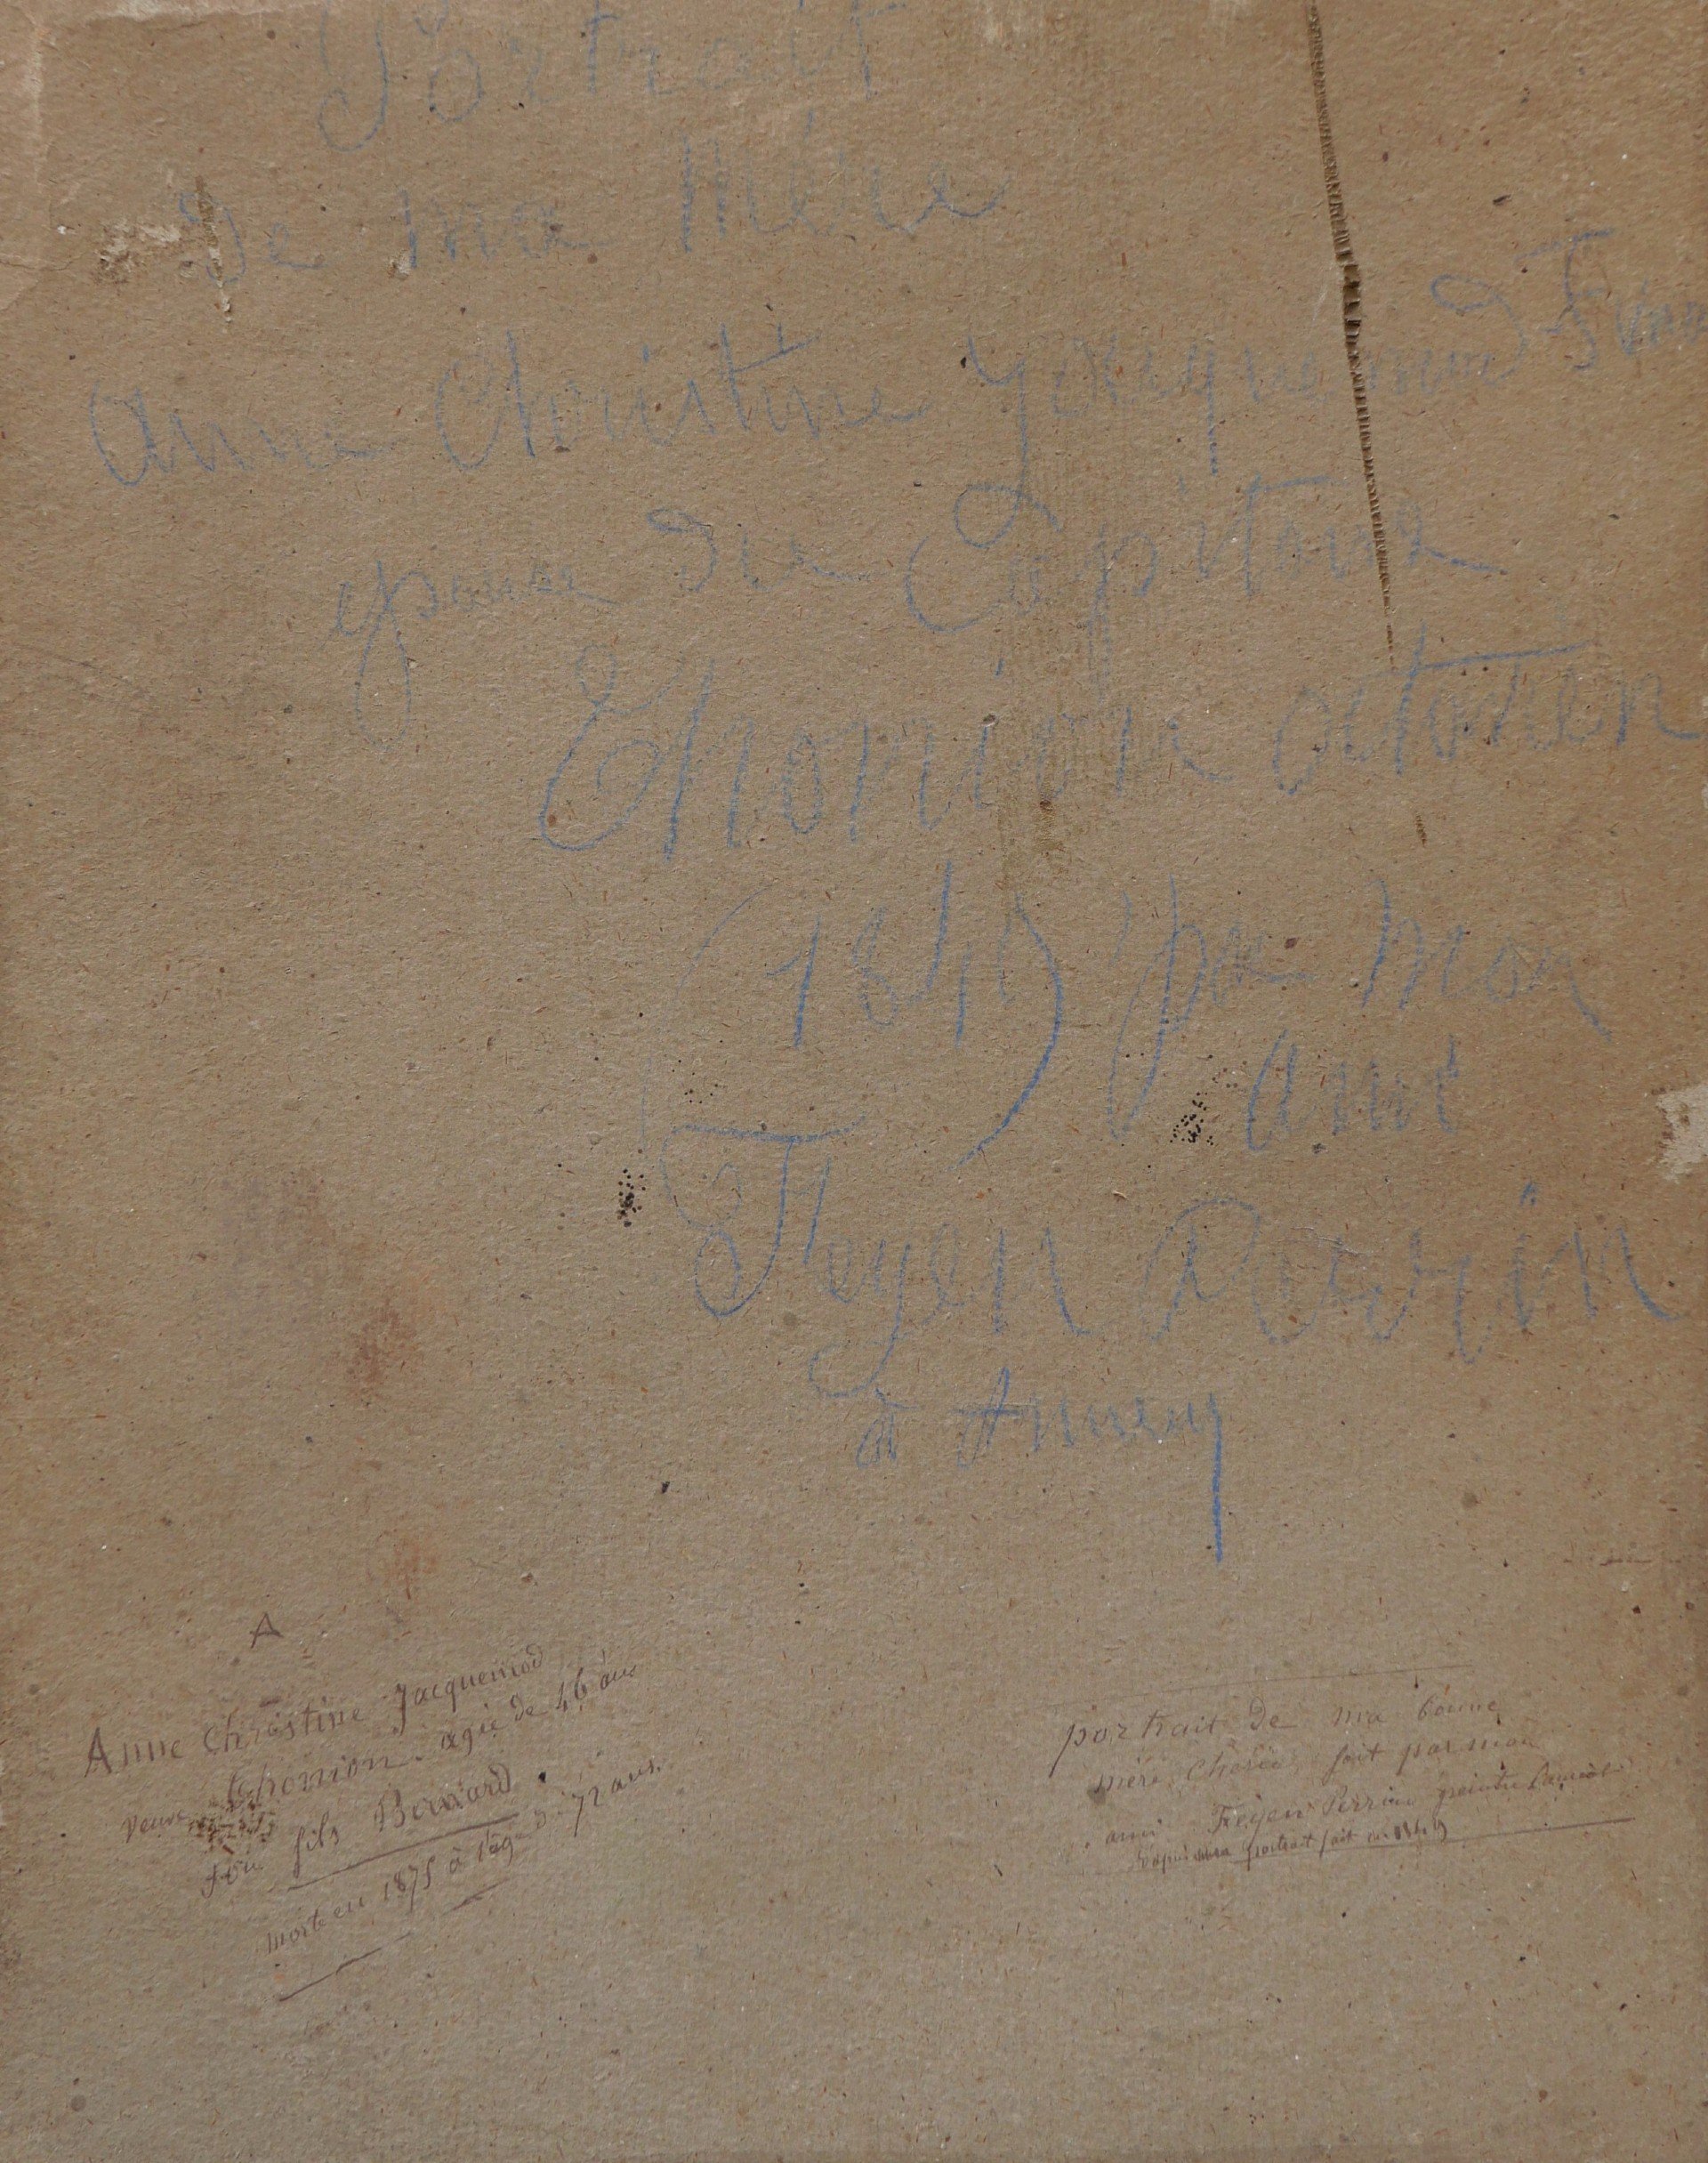 Portrait
De ma Mère
Anne Christine Jacquemod
épouse du Capitaine
Thonion
par mon
ami
Feyen Perrin
à Annecy
A
Anne Christine Jacquemod
veuve Thonion . agée de 46 ans
son fils Bernard .
morte en 1875 à l'âge de 72 ans.
portrait de ma bonne
mère chérie fait par mon
ami Feyen Perrin peintre
portrait fait en 1849